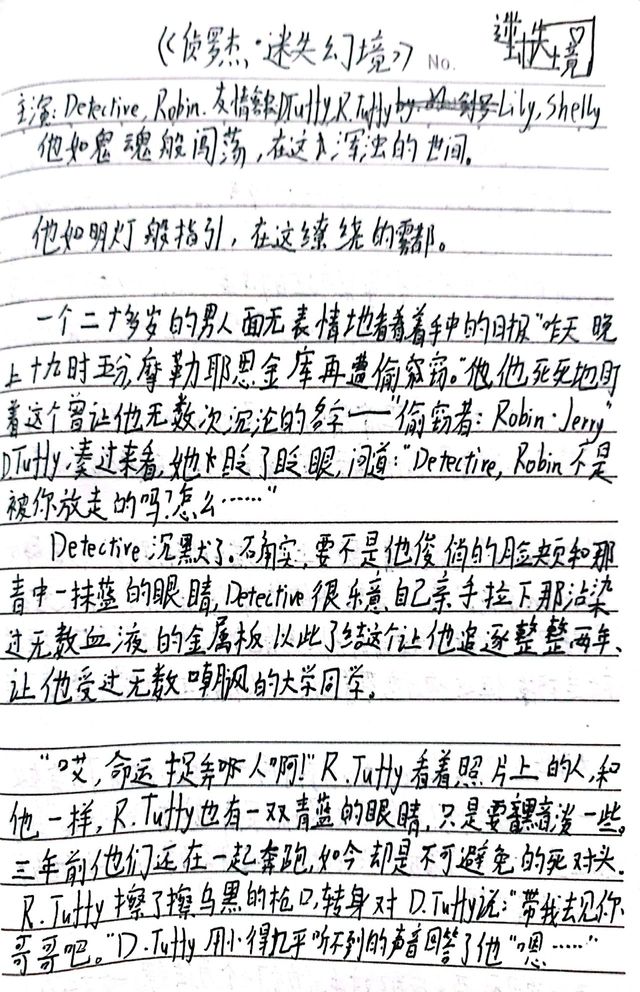 《侦罗杰·迷失幻境》 No. 迷失境
主演: Detective, Robin. 友情客串D.Tuffy, R.Tuffy Lily, Shelly
他如鬼魂般闯荡，在这浑浊的世间。
他如明灯般指引，在这缭绕的雾都。
一个二十多岁的男人面无表情地看着手中的日报“昨天晚
上十九时五分，摩勒耶恩金库再遭偷窃。”他，他死死地盯
着这个曾让他无数次沉沦的名字——“偷窃者: Robin·Jerry”
D.Tuffy凑过来看，她眨了眨眼，问道: “Detective, Robin不是
被你放走的吗？怎么……”
Detective沉默了。确实，要不是他俊俏的脸颊和那
青中一抹蓝的眼睛，Detective很乐意自己亲手拉下那沾染
过无数血液的金属板以此了结这个让他追逐整整两年、
让他受过无数嘲讽的大学同学。
“哎，命运捉弄人啊！”R.Tuffy看着照片上的人，和
他一样，R.Tuffy也有一双青蓝的眼睛，只是要黯淡一些。
三年前他们还在一起奔跑，如今却是不可避免的死对头。
R.Tuffy擦了擦乌黑的枪口，转身对D.Tuffy说: “带我去见你
哥哥吧。”D.Tuffy用小得几乎听不到的声音回答了他“嗯……”